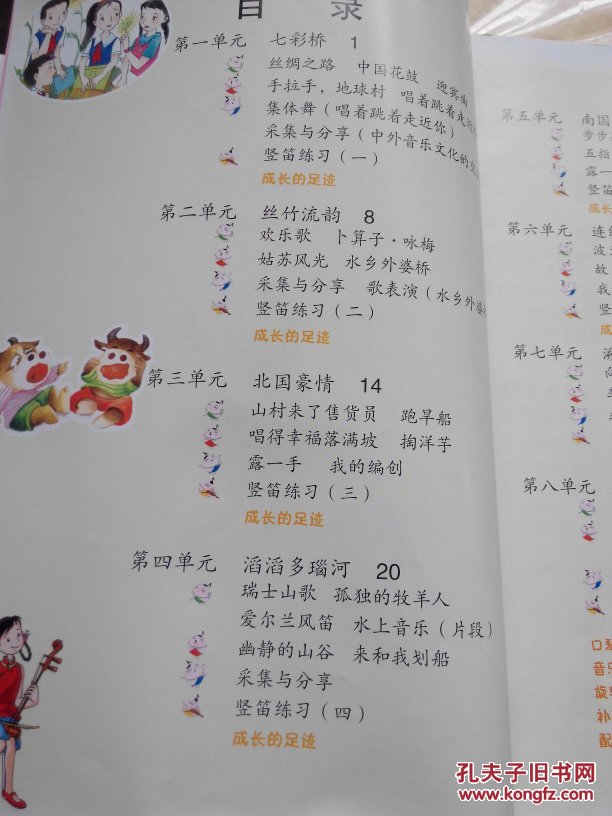 目 录
第一单元 七彩桥 1
丝绸之路 中国花鼓 迎宾曲
手拉手，地球村 唱着跳着走近
集体舞（唱着跳着走近你）
采集与分享（中外音乐文化的
竖笛练习（一）
成长的足迹
第二单元 丝竹流韵 8
欢乐歌 卜算子·咏梅
姑苏风光 水乡外婆桥
采集与分享 歌表演（水乡外婆
竖笛练习（二）
成长的足迹
第三单元 北国豪情 14
山村来了售货员 跑旱船
唱得幸福落满坡 掏洋芋
露一手 我的编创
竖笛练习（三）
成长的足迹
第四单元 滔滔多瑙河 20
瑞士山歌 孤独的牧羊人
爱尔兰风笛 水上音乐（片段）
幽静的山谷 来和我划船
采集与分享
竖笛练习（四）
成长的足迹
第五单元 南国
步步
五指
露一
竖笛
成长
第六单元 连
波
故
我
竖
成
第七单元
向
第八单元
口琴
音乐
旋
补
配
孔夫子旧书网
www.kongfz.com